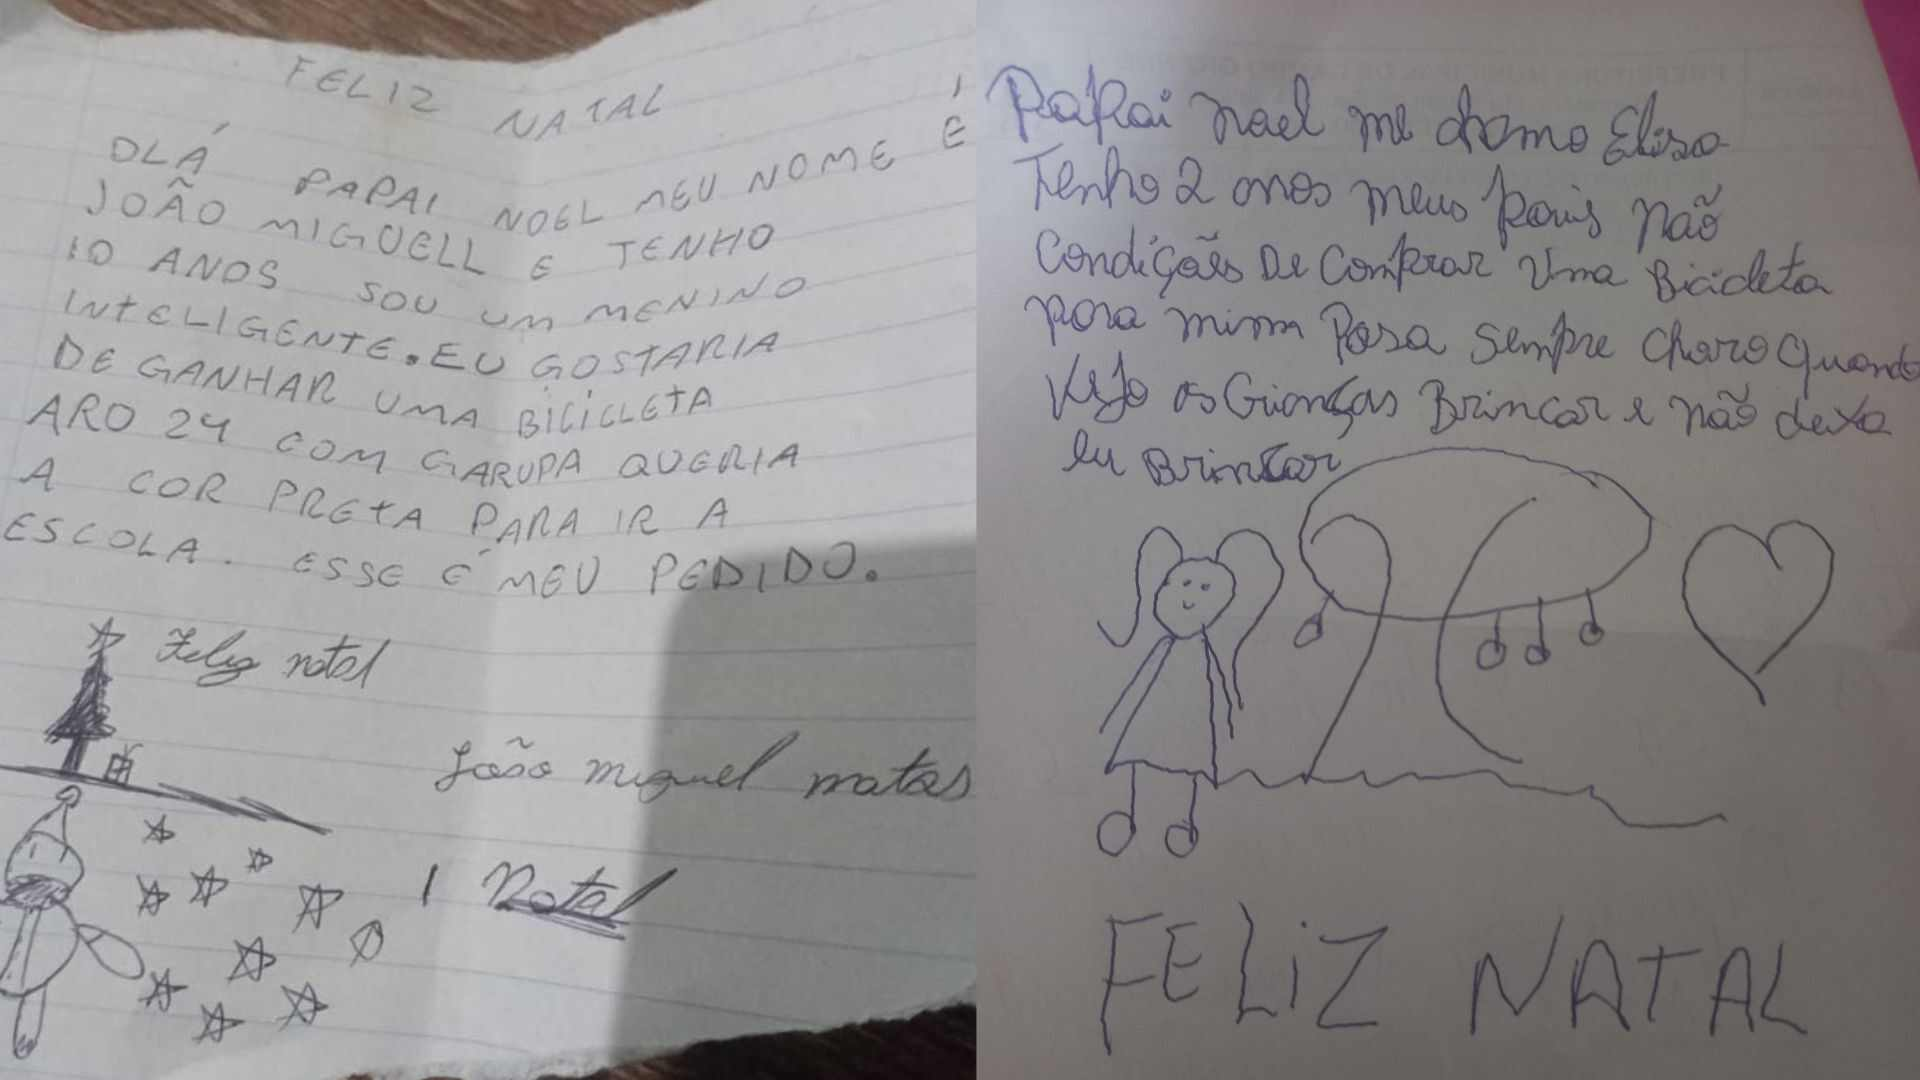 FELIZ NATAL
OLÁ PAPAI NOEL MEU NOME É
JOÃO MIGUELL E TENHO
10 ANOS SOU UM MENINO
INTELIGENTE. EU GOSTARIA
DE GANHAR UMA BICICLETA
ARO 24 COM GARUPA QUERIA
A COR PRETA PARA IR A
ESCOLA. ESSE É MEU PEDIDO.
Feliz natal
João miguel matos
Natal
Papai nael me chamo Elisa
Tenho 2 anos meus pais não
Condições De Comprar Uma Bicicleta
para mim Sempre choro quando
Vejo as Crianças Brincar e não dexa
eu Brincar
FELIZ NATAL